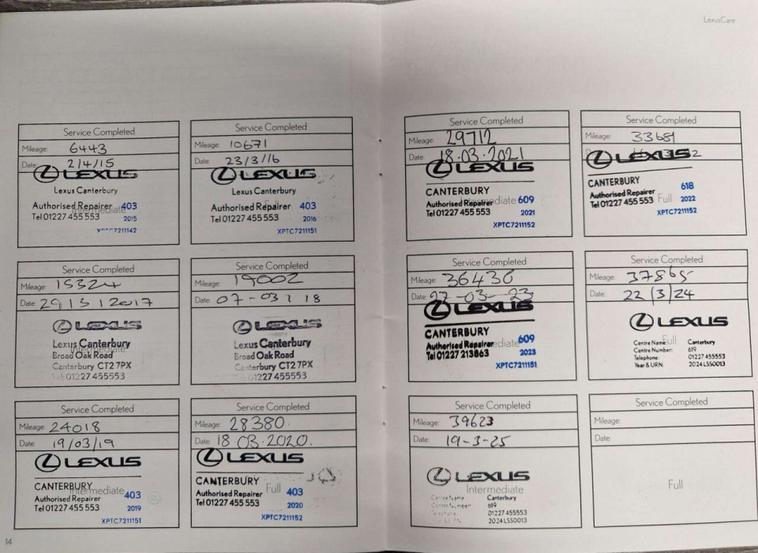 LexusCare
Service Completed
Mileage: 6443
Date: 2/4/15
LEXUS
Lexus Canterbury
Authorised Repairer 403
Tel 01227 455 553 2015
7211142
Service Completed
Mileage: 10671
Date 23/3/16
LEXUS
Lexus Canterbury
Full
Authorised Repairer 403
Tel 01227 455 553 2016
XPTC7211151
Service Completed
Mileage: 15324
Date 29 1 5 1 2017
LEXUS
Lexus Canterbury
Intermediate
Broad Oak Road
Canterbury CT2 7PX
01227 455553
Service Completed
Mileage: 19002
Date 07-03 1 18
LEXUS
Lexus Canterbury
Broad Oak Road
Canterbury CT2 7PX
01227 455553
Service Completed
Mileage: 24018
Date 19/03/19
LEXUS
CANTERBURY
Intermediate
Authorised Repairer 403
Tel 01227 455 553 2019
XPTC7211151
Service Completed
Mileage: 28380
Date 18.03.2020.
LEXUS
CANTERBURY
Full
Authorised Repairer 403
Tel 01227 455 553 2020
XPTC7211152
14
Service Completed
Mileage: 29712
Date 18.03.2021
LEXUS
CANTERBURY
Intermediate
Authorised Repairer 609
Tel 01227 455 553 2021
XPTC7211152
Service Completed
Mileage: 33681
LEXUS
CANTERBURY 618
Authorised Repairer Full 2022
Tel 01227 455 553
XPTC7211152
Service Completed
Mileage: 36436
Date 27-03-23
LEXUS
CANTERBURY
Intermediate
Authorised Repairer 609
Tel 01227 213863 2023
XPTC7211151
Service Completed
Mileage: 37865
Date: 22/3/24
LEXUS
Full
Centre Name: Canterbury
Centre Number: 619
Telephone: 01227 455553
Year & URN: 2024LSS0013
Service Completed
Mileage: 39623
Date: 19-3-25
LEXUS
Intermediate
Centre Name Canterbury
Centre Number 619
Telephone 01227 455553
2024LSS0013
Service Completed
Mileage:
Date
Full